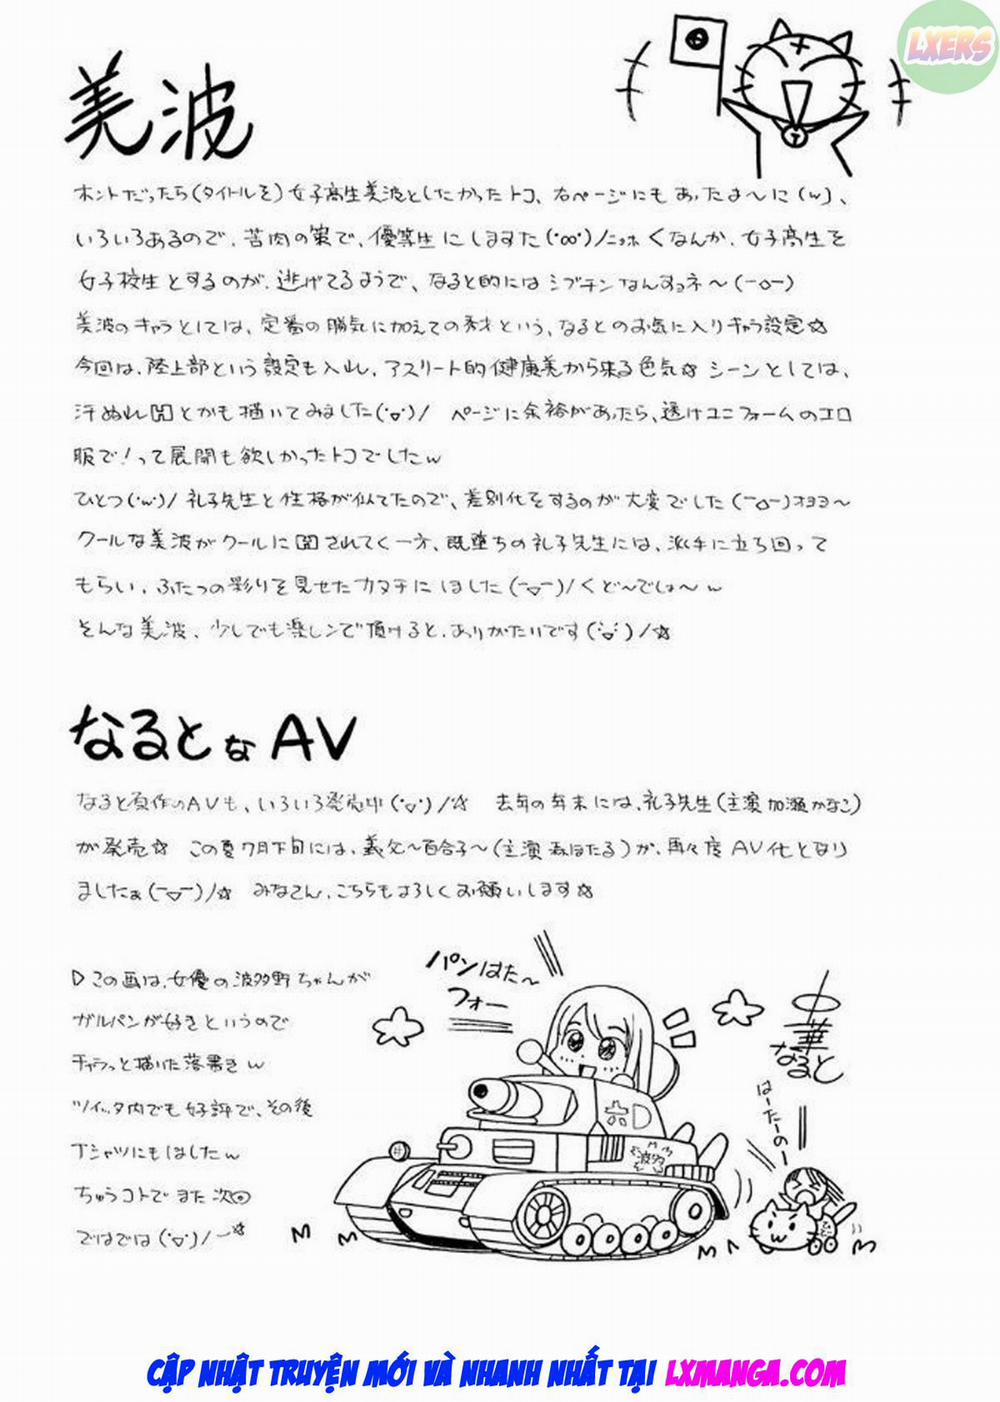 LXERS
美波
ホントだったら(タイトルを)女子高生美波としたかったトコ、右ページにもあったよ〜に(w)、
いろいろあるので、苦肉の策で、優等生にしますた(°∞°)/ニョホ くなんか、女子高生を
女子校生とするのが、逃げてるようで、なると的にはシブチンなんすョネ〜(-o-)
美波のキャラとしては、定番の勝気に加えての秀才という、なるとのお気に入りキャラ設定☆
今回は、陸上部という設定も入れ、アスリート的健康美から来る色気☆ シーンとしては、
汗ぬれ とかも描いてみました(°▽°)/ ページに余裕があったら、透けユニフォームのエロ
服で!って展開も欲しかったトコでしたw
ひとつ(°w°)/ 礼子先生と性格が似てたので、差別化をするのが大変でした(-o-)オヨヨ〜
クールな美波がクールに されてく一方、既堕ちの礼子先生には、派手に立ち回って
もらい、ふたつの彩りを見せたカタチに しました(-▽-)/くど〜でしょ〜w
そんな美波、少しでも楽しンで頂けると、ありがたいです(°▽°)/☆
なるとなAV
なると原作のAVも、いろいろ発売中(°▽°)/☆ 去年の年末には、礼子先生(主演 加瀬かなこ)
が発売☆ この夏7月下旬には、義父〜百合子〜(主演 森ほたる)が、再々度AV化となり
ましたぁ(-▽-)/☆ みなさん、こちらもよろしくお願いします☆
▷この画は、女優の波多野ちゃんが
ガルパンが好きというので
チャラっと描いた落書きw
ツイッタ内でも好評で、その後
Tシャツにもしましたw
ちゅうコトでまた次回
ではでは(°▽°)/〜☆
パンはた〜
フォー
中華
なると
はーたーのー
CẬP NHẬT TRUYỆN MỚI VÀ NHANH NHẤT TẠI LXMANGA.COM